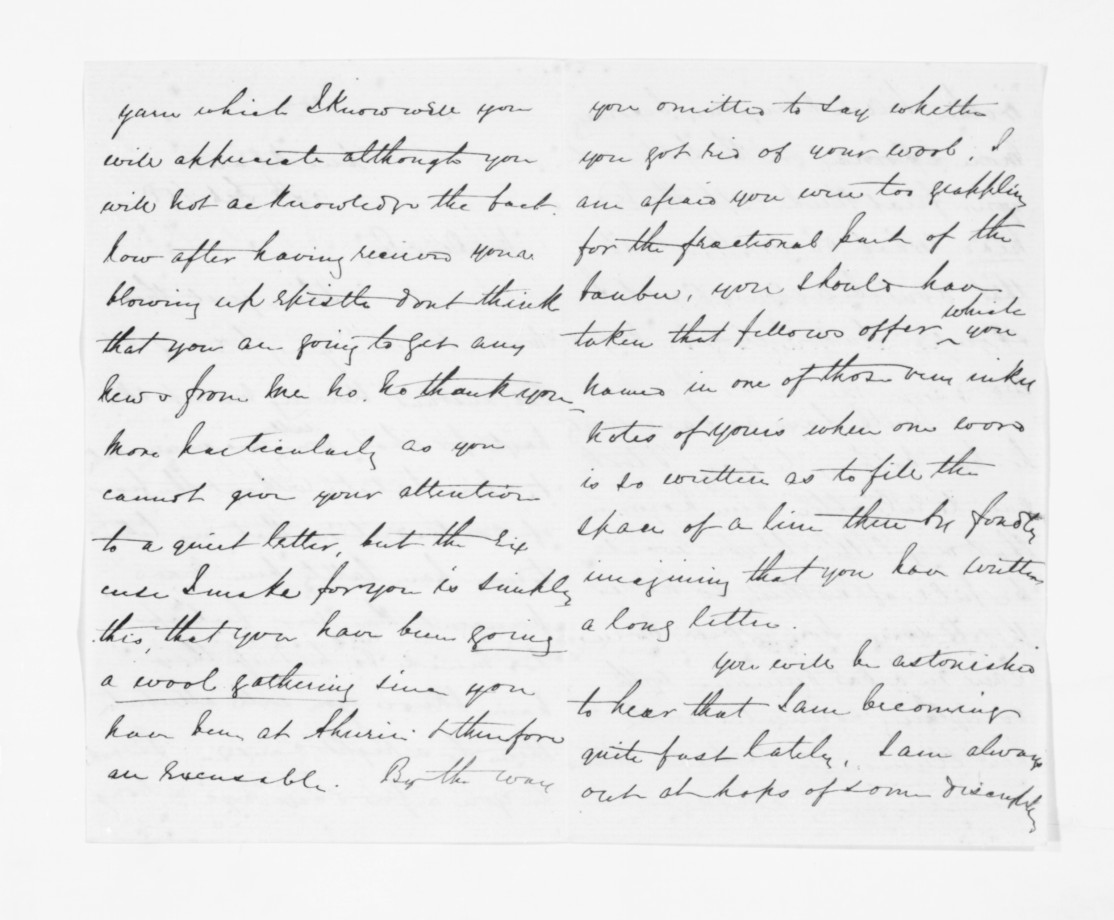 yarn which I Know well you
will appreciate although you
will not acknowledge the fact.
Now after having received your
blowing up epistle dont think
that you are going to get any
news from me no. no thank you
more particularly as you
cannot give your attention
to a quiet letter, but the ex
cuse I make for you is simply
this, that you have been going
a wool gathering since you
have been at & therefore
are excusable. By the way
you omitted to say whether
you got rid of your wool. I
am afraid you were too grappling
for the fractional part of the
you should have
taken that fellows offer which you
named in one of those very inky
notes of yours when one word
is so written as to fill the
space of a line there by fondly
imagining that you have written
a long letter.
You will be astonished
to hear that I am becoming
quite fast lately, I am always
out at hops of some